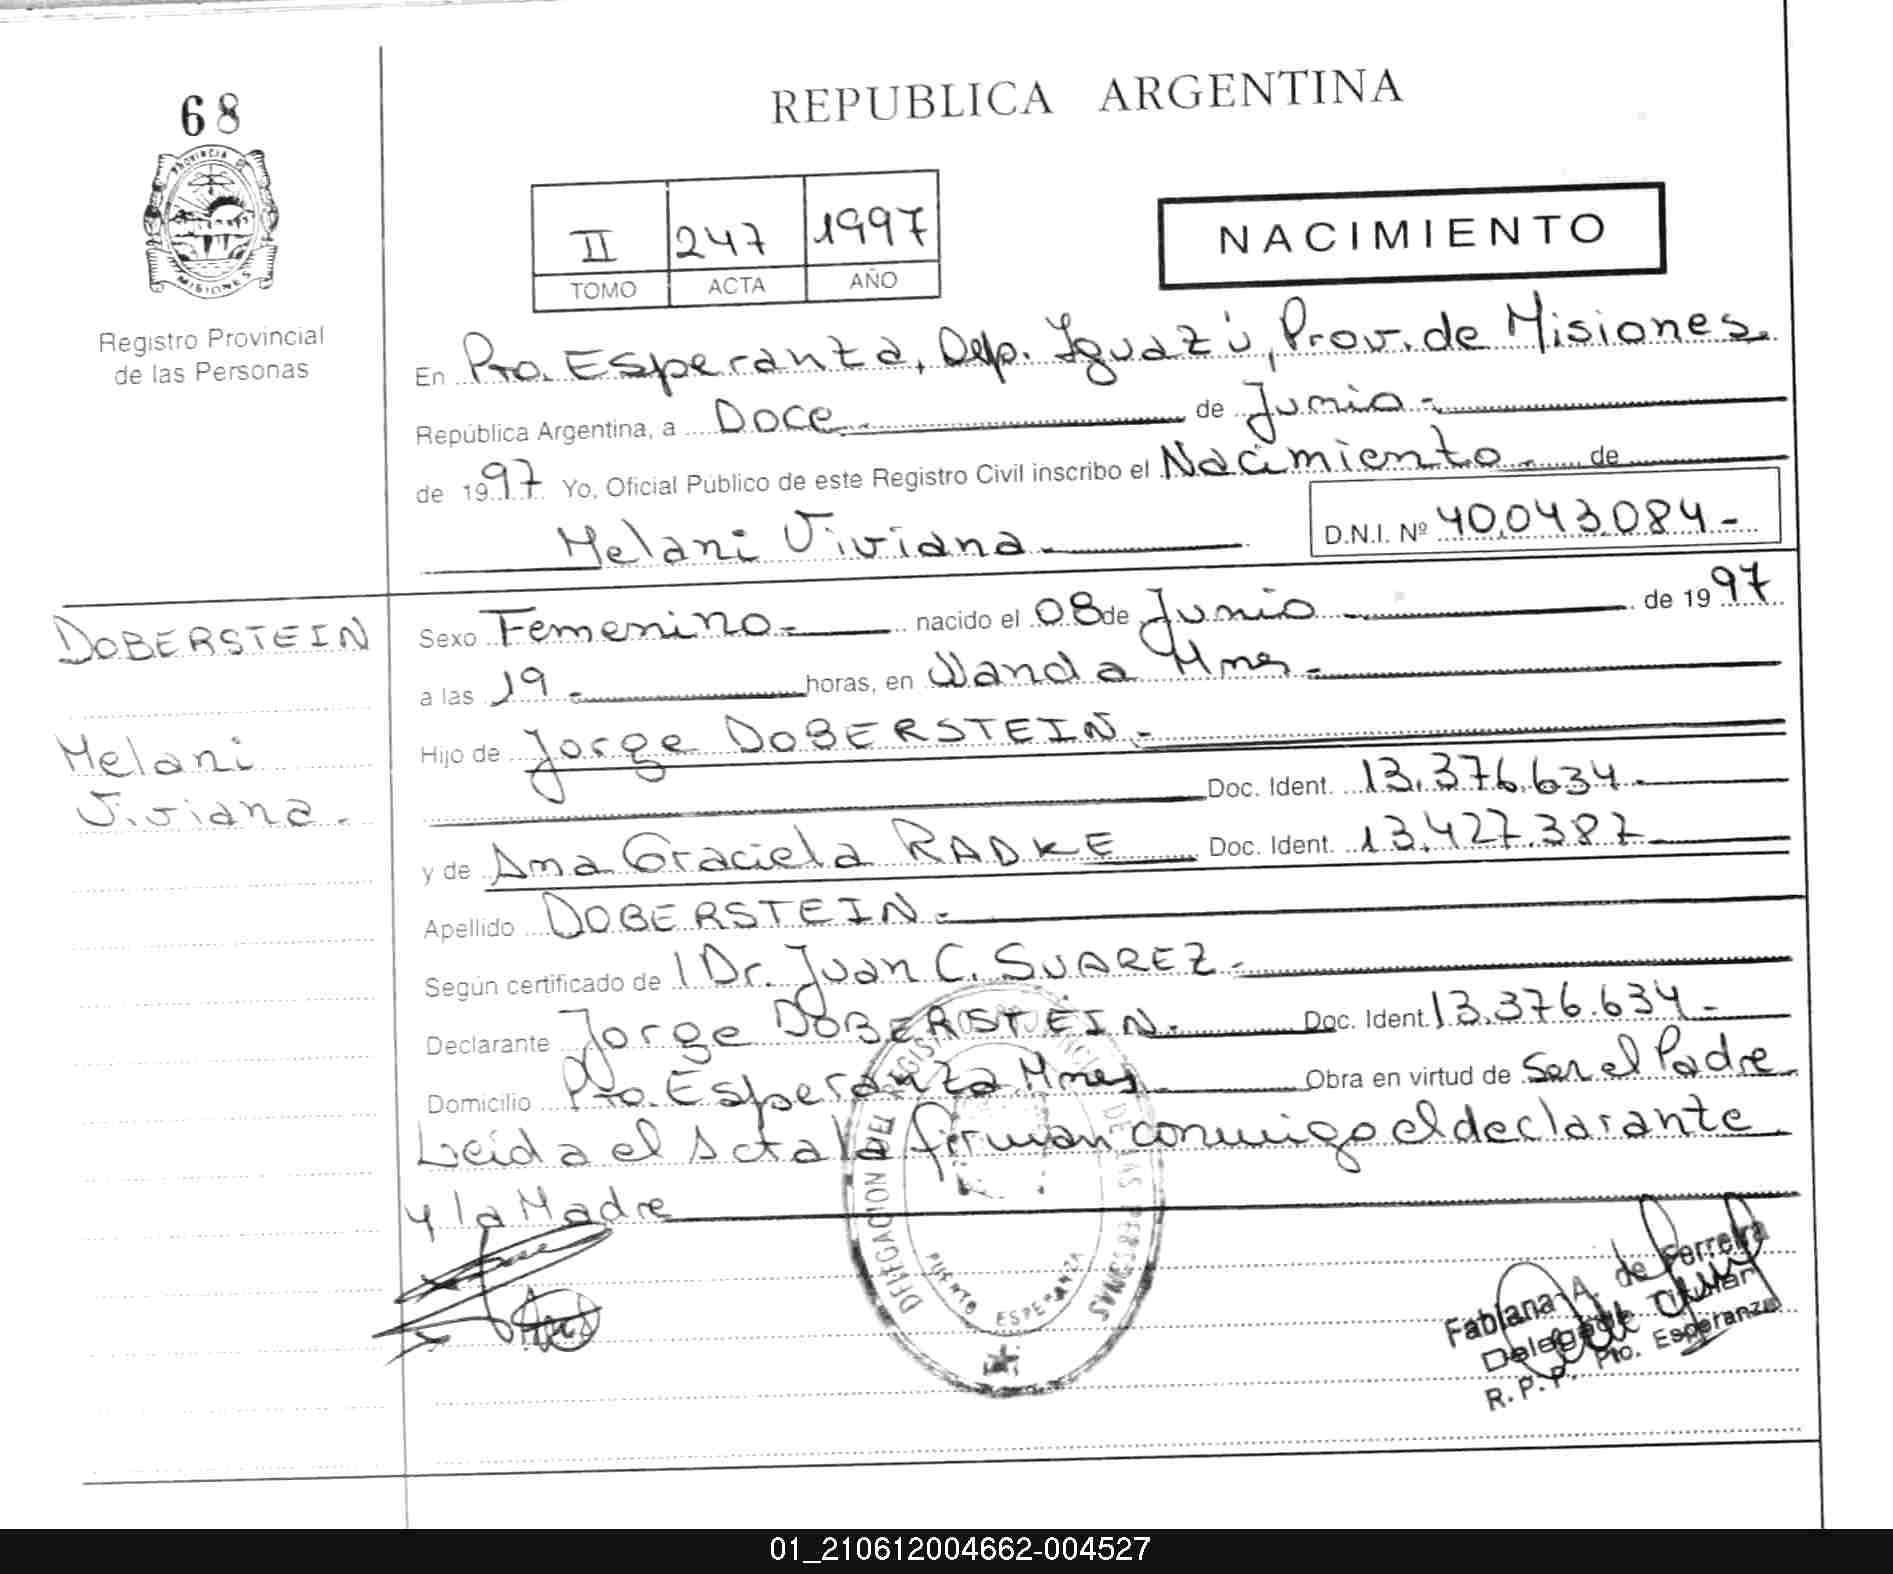 68
PROVINCIA DE
MISIONES
Registro Provincial
de las Personas
REPUBLICA ARGENTINA
II 247 1997
TOMO ACTA AÑO
NACIMIENTO
En Pto. Esperanza, Dep. Iguazú, Prov. de Misiones.
República Argentina, a Doce.- de Junio.-
de 1997 Yo, Oficial Público de este Registro Civil inscribo el Nacimiento.- de
Melani Viviana.- D.N.I. Nº 40.043.084-
DOBERSTEIN
Melani
Viviana.
Sexo Femenino.- nacido el 08 de Junio de 1997
a las 19.- horas, en Wanda Mnes.-
Hijo de Jorge DOBERSTEIN.-
Doc. Ident. 13.376.634.-
y de Ana Graciela RADKE Doc. Ident. 13.427.387
Apellido DOBERSTEIN.-
Según certificado de l Dr. Juan C. SUAREZ.-
Declarante Jorge DOBERSTEIN.- Doc. Ident. 13.376.634-
Domicilio Pto. Esperanza Mnes. Obra en virtud de Ser el Padre
Leida el Acta la firman conmigo el declarante
y la Madre
DELEGACION DEL REGISTRO PROVINCIAL DE LAS PERSONAS
PUERTO ESPERANZA
Fabiana A. de Ferreira
Delegada Titular
R.P.P. Pto. Esperanza
01_210612004662-004527